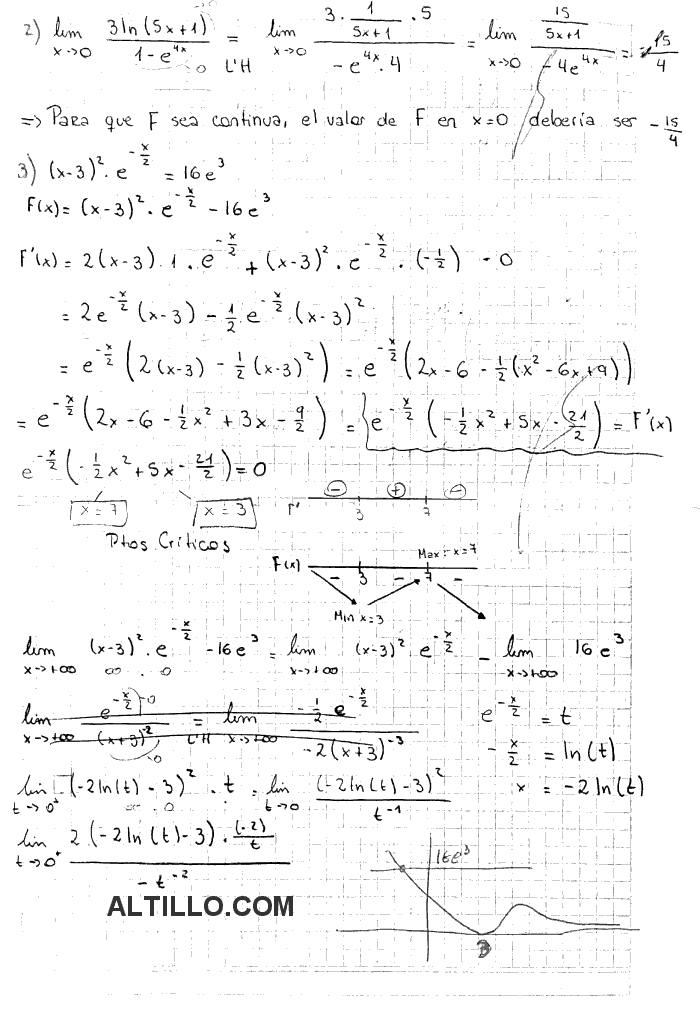 2) lim x→0 3ln(5x+1) / 1-e^4x = L'H lim x→0 3 · 1/(5x+1) · 5 / -e^4x · 4 = lim x→0 15/(5x+1) / -4e^4x = -15/4
⇒ Para que F sea continua, el valor de F en x=0 debería ser -15/4
3) (x-3)² · e^(-x/2) = 16e³
F(x) = (x-3)² · e^(-x/2) - 16e³
F'(x) = 2(x-3) · 1 · e^(-x/2) + (x-3)² · e^(-x/2) · (-1/2) - 0
= 2e^(-x/2) (x-3) - 1/2 e^(-x/2) (x-3)²
= e^(-x/2) (2(x-3) - 1/2 (x-3)²) = e^(-x/2) (2x-6 - 1/2(x² - 6x+9))
= e^(-x/2) (2x-6 - 1/2x² + 3x - 9/2) = e^(-x/2) (-1/2x² + 5x - 21/2) = F'(x)
e^(-x/2) (-1/2x² + 5x - 21/2) = 0
x = 7 x = 3
F' - 3 + 7 -
Ptos Críticos
Max: x=7
F(x) - 3 - 7 -
Min x=3
lim x→+∞ (x-3)² · e^(-x/2) - 16e³ = lim x→+∞ (x-3)² e^(-x/2) - lim x→+∞ 16e³
∞ · 0
lim x→+∞ e^(-x/2) / (x+3)^-2 = L'H lim x→+∞ -1/2 e^(-x/2) / -2(x+3)^-3
e^(-x/2) = t
-x/2 = ln(t)
x = -2ln(t)
lim t→0⁺ (-2ln(t) - 3)² · t = lim t→0 (-2ln(t)-3)² / t^-1
∞ · 0
lim t→0⁺ 2(-2ln(t)-3) · (-2)/t / -t^-2
16e³
3
ALTILLO.COM